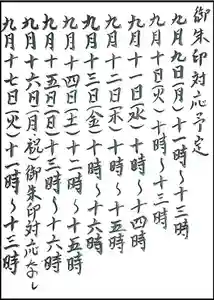 御朱印対応予定
九月九日(月)十一時〜十三時
九月十日(火)十時〜十三時
九月十一日(水)十時〜十四時
九月十二日(木)十時〜十五時
九月十三日(金)十時〜十六時
九月十四日(土)十二時〜十五時
九月十五日(日)十三時〜十六時
九月十六日(月・祝)御朱印対応なし
九月十七日(火)十一時〜十三時